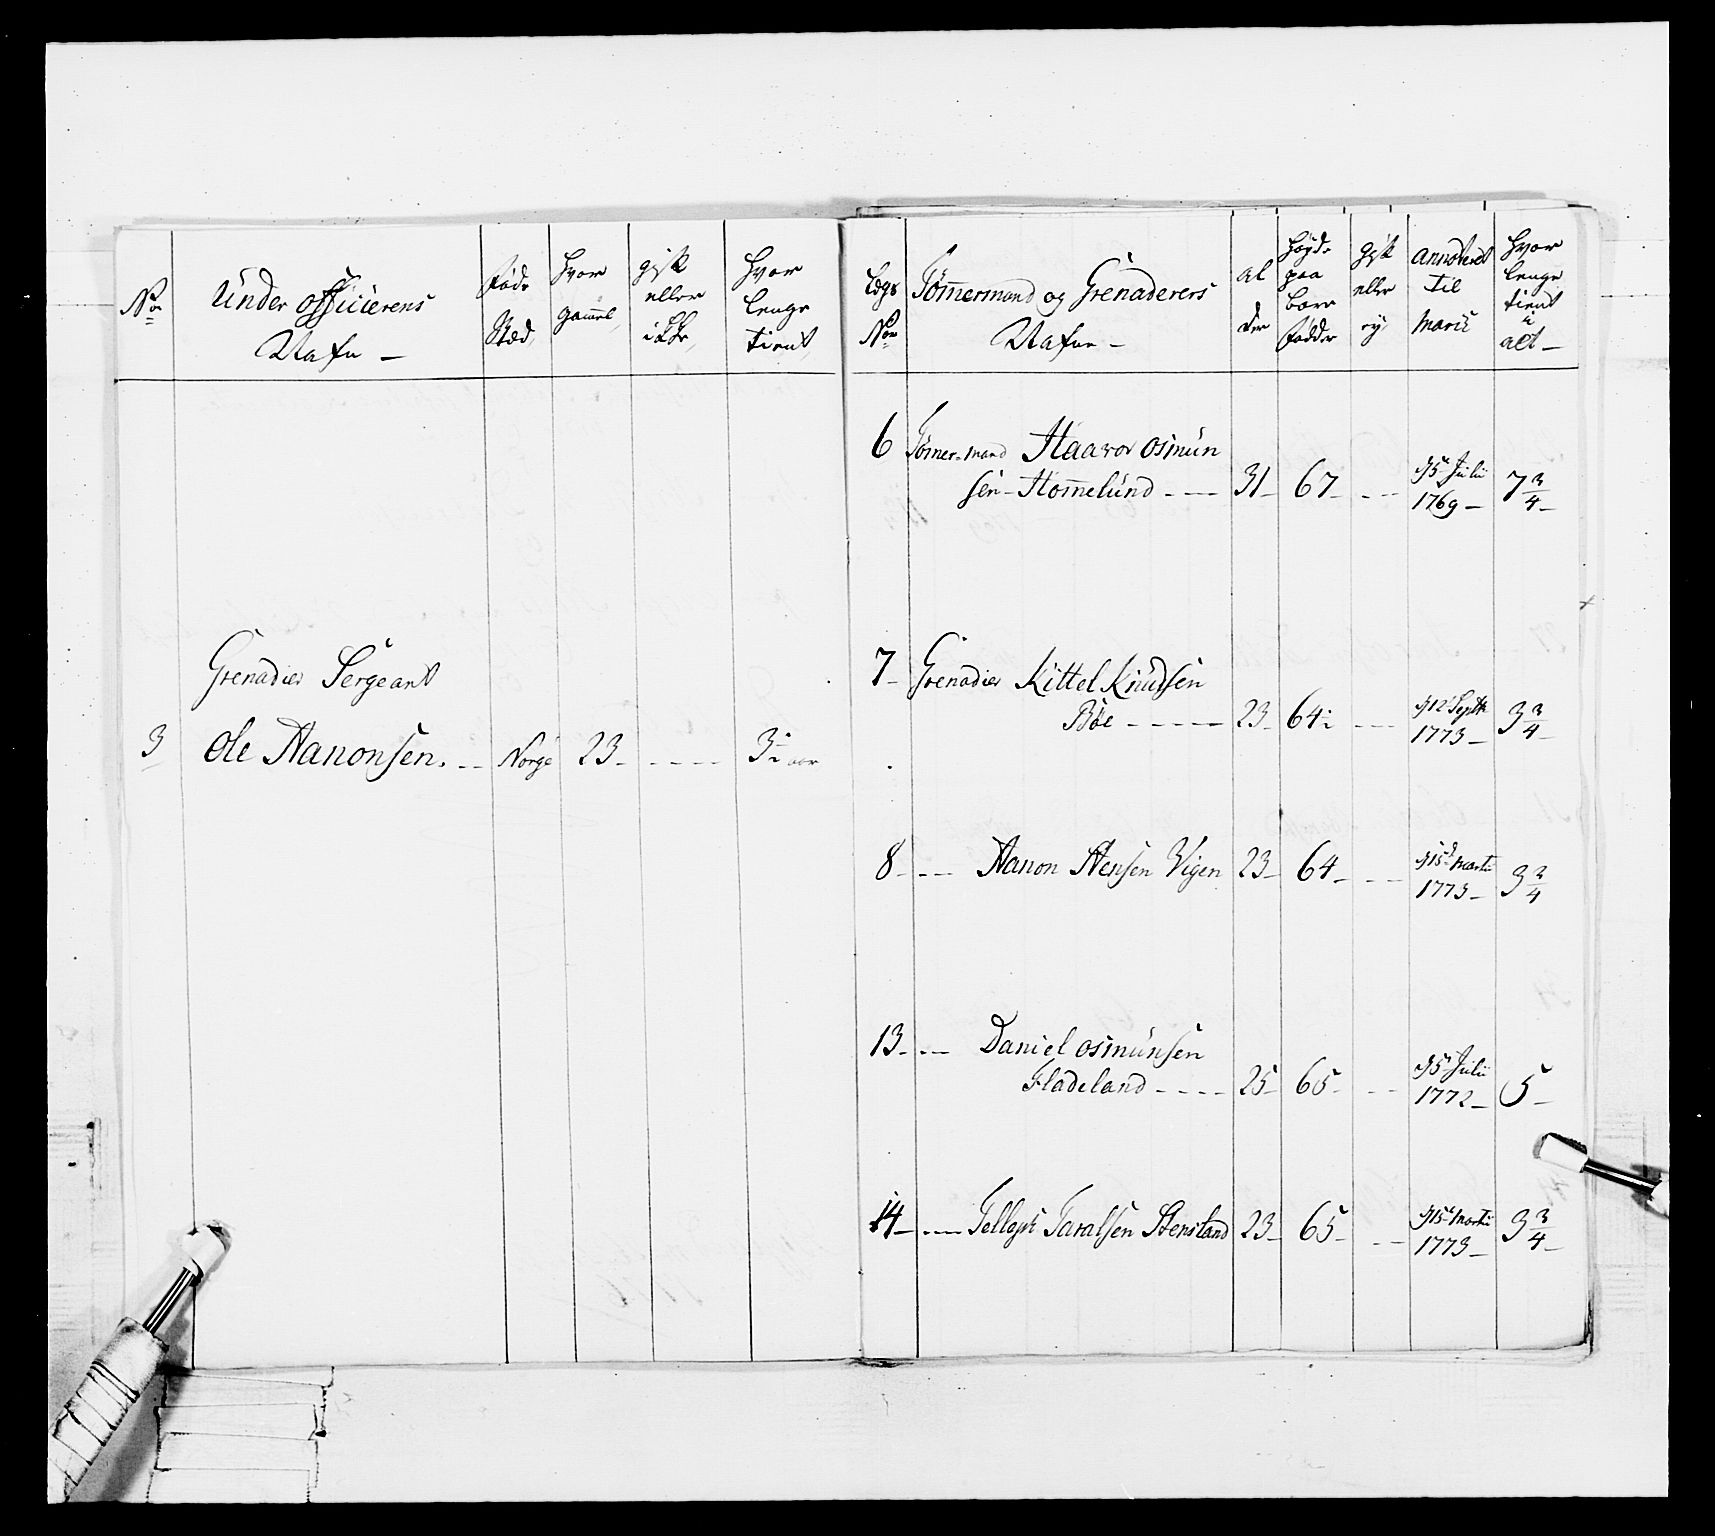 No
Under officierens
Nafn —
føde
Stæd,
hvor
gamel,
gift
eller
ikke,
hvor
lenge
tient,
Grenadier Sergeant
3 Ole Aanonsen. — Norge 23 - - - - - 3½ aar
Legs
No
Tømermand og Grenaderers
Nafne —
al
der
høyde
paa
bare
fødder
gift
eller
ey
Annoteret
til
Maric
hvor
lenge
tient
i
alt —
6 Tømer-mand Haavor Osmun
sen - Homelund - - — 31 - 67 - - - - d 5 Julii
1769 — 7 3/4 -
7 - Grenadier Kittel Knudsen
Bøe - - - - - 23 64½ - - - d 12 Septb
1773 — 3 3/4 -
8 - - - - Aanon Stensen Vigen 23 - 64 - - - - d 15 Martii
1773 — 3 3/4
13 - - - Daniel Osmunsen
Fladeland - - - - 25 - 65 - - - - d 5 Julii
1772 — 5 -
14 - - - - Tellefs Taralsen Stensland 23 - 65 - - - - d 15 Martii
1773 — 3 3/4 -